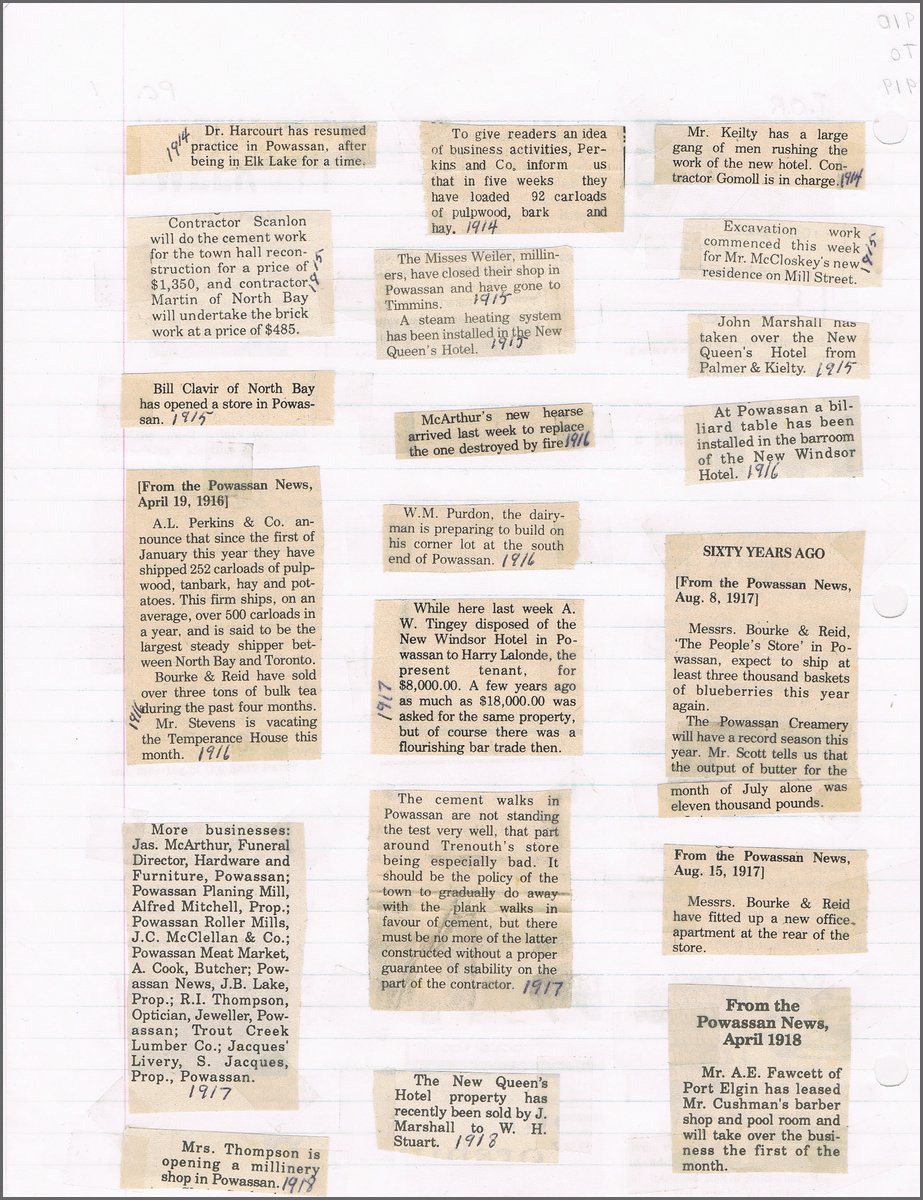 910
TO
919
Dr. Harcourt has resumed
practice in Powassan, after
being in Elk Lake for a time.
1914
Contractor Scanlon
will do the cement work
for the town hall recon-
struction for a price of
$1,350, and contractor
Martin of North Bay
will undertake the brick
work at a price of $485.
1915
Bill Clavir of North Bay
has opened a store in Powas-
san. 1915
[From the Powassan News,
April 19, 1916]
A.L. Perkins & Co. an-
nounce that since the first of
January this year they have
shipped 252 carloads of pulp-
wood, tanbark, hay and pot-
atoes. This firm ships, on an
average, over 500 carloads in
a year, and is said to be the
largest steady shipper bet-
ween North Bay and Toronto.
Bourke & Reid have sold
over three tons of bulk tea
during the past four months.
1916
Mr. Stevens is vacating
the Temperance House this
month. 1916
More businesses:
Jas. McArthur, Funeral
Director, Hardware and
Furniture, Powassan;
Powassan Planing Mill,
Alfred Mitchell, Prop.;
Powassan Roller Mills,
J.C. McClellan & Co.;
Powassan Meat Market,
A. Cook, Butcher; Pow-
assan News, J.B. Lake,
Prop.; R.I. Thompson,
Optician, Jeweller, Pow-
assan; Trout Creek
Lumber Co.; Jacques'
Livery, S. Jacques,
Prop., Powassan.
1917
Mrs. Thompson is
opening a millinery
shop in Powassan. 1918
To give readers an idea
of business activities, Per-
kins and Co. inform us
that in five weeks they
have loaded 92 carloads
of pulpwood, bark and
hay. 1914
The Misses Weiler, millin-
ers, have closed their shop in
Powassan and have gone to
Timmins. 1915
A steam heating system
has been installed in the New
Queen's Hotel. 1915
McArthur's new hearse
arrived last week to replace
the one destroyed by fire 1916
W.M. Purdon, the dairy-
man is preparing to build on
his corner lot at the south
end of Powassan. 1916
While here last week A.
W. Tingey disposed of the
New Windsor Hotel in Po-
wassan to Harry Lalonde, the
present tenant, for
$8,000.00. A few years ago
as much as $18,000.00 was
asked for the same property,
but of course there was a
flourishing bar trade then.
1917
The cement walks in
Powassan are not standing
the test very well, that part
around Trenouth's store
being especially bad. It
should be the policy of the
town to gradually do away
with the plank walks in
favour of cement, but there
must be no more of the latter
constructed without a proper
guarantee of stability on the
part of the contractor. 1917
The New Queen's
Hotel property has
recently been sold by J.
Marshall to W. H.
Stuart. 1918
Mr. Keilty has a large
gang of men rushing the
work of the new hotel. Con-
tractor Gomoll is in charge. 1914
Excavation work
commenced this week
for Mr. McCloskey's new
residence on Mill Street.
1915
John Marshall has
taken over the New
Queen's Hotel from
Palmer & Kielty. 1915
At Powassan a bil-
liard table has been
installed in the barroom
of the New Windsor
Hotel. 1916
SIXTY YEARS AGO
[From the Powassan News,
Aug. 8, 1917]
Messrs. Bourke & Reid,
'The People's Store' in Po-
wassan, expect to ship at
least three thousand baskets
of blueberries this year
again.
The Powassan Creamery
will have a record season this
year. Mr. Scott tells us that
the output of butter for the
month of July alone was
eleven thousand pounds.
From the Powassan News,
Aug. 15, 1917]
Messrs. Bourke & Reid
have fitted up a new office
apartment at the rear of the
store.
From the
Powassan News,
April 1918
Mr. A.E. Fawcett of
Port Elgin has leased
Mr. Cushman's barber
shop and pool room and
will take over the busi-
ness the first of the
month.